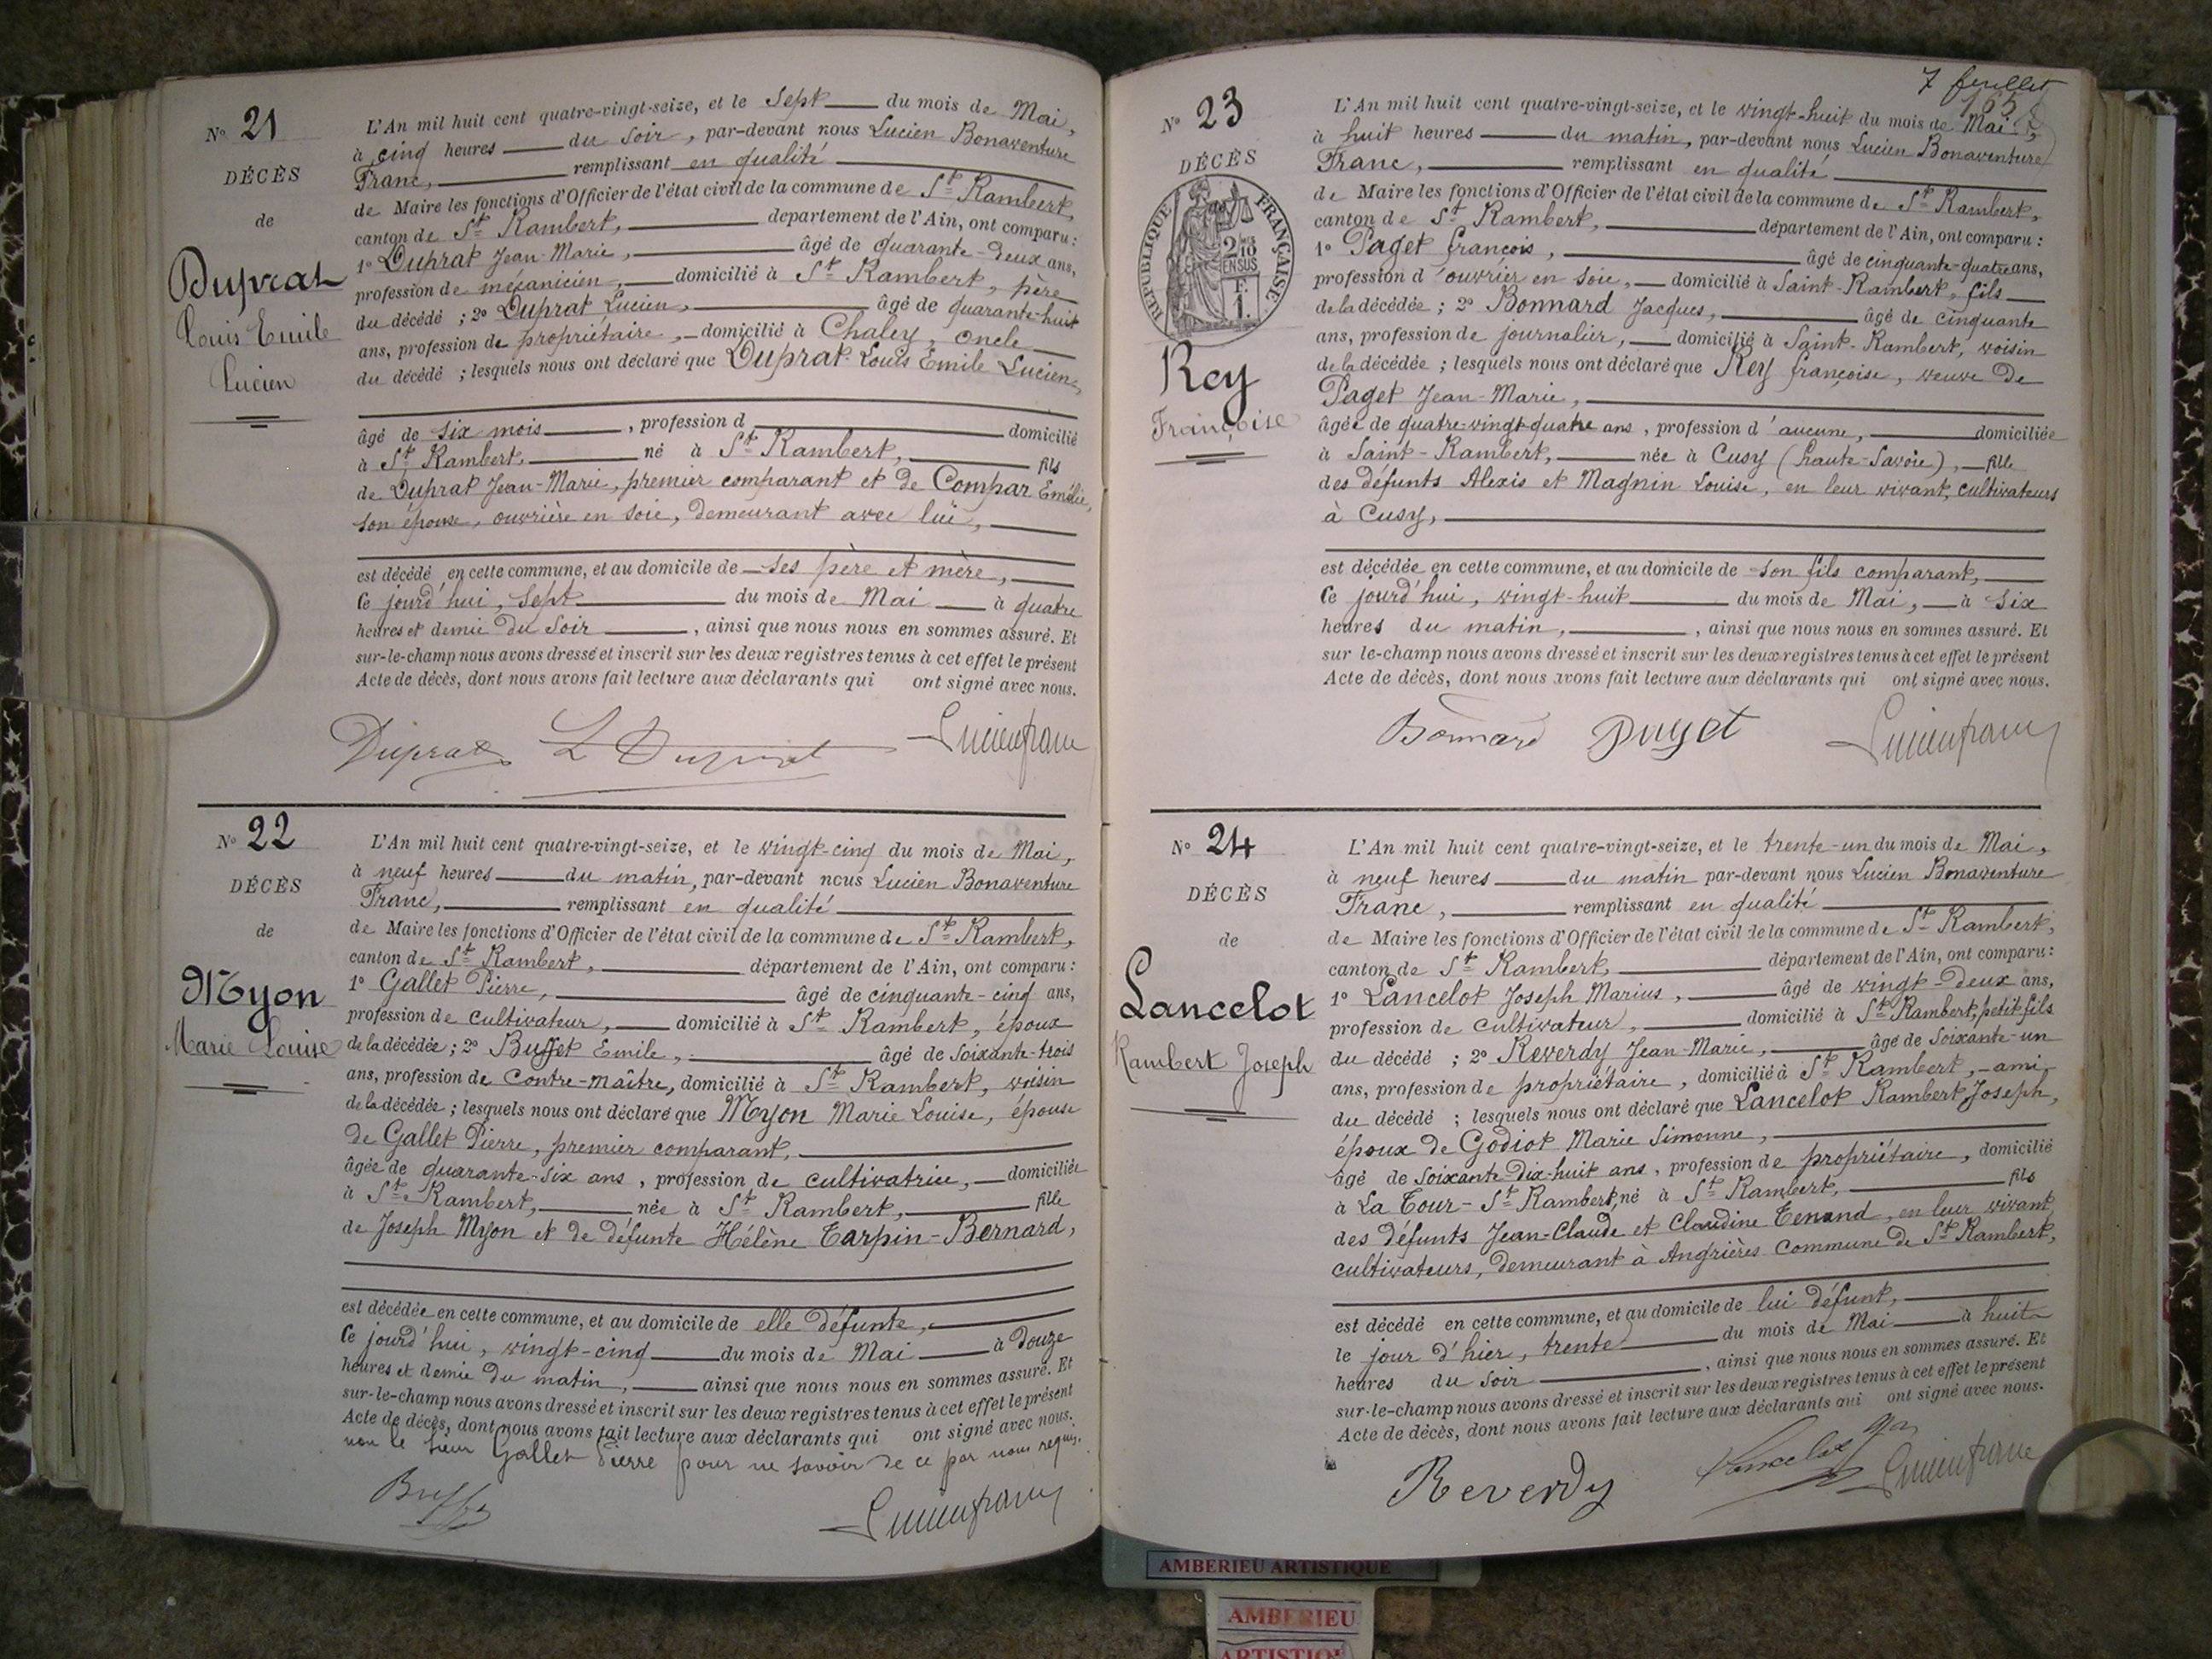 N° 21
DÉCÈS
de
Duprat
Louis Emile
Lucien
L'An mil huit cent quatre-vingt-seize, et le sept du mois de Mai,
à cinq heures du soir, par-devant nous Lucien Bonaventure
Franc, remplissant en qualité
de Maire les fonctions d'Officier de l'état civil de la commune de St Rambert,
canton de St Rambert, département de l'Ain, ont comparu :
1° Duprat Jean-Marie, âgé de quarante-deux ans,
profession de mécanicien, domicilié à St Rambert, père
du décédé ; 2° Duprat Lucien, âgé de quarante-huit
ans, profession de propriétaire, domicilié à Chaley, oncle
du décédé ; lesquels nous ont déclaré que Duprat Louis Emile Lucien,
âgé de six mois, profession d domicilié
à St Rambert, né à St Rambert, fils
de Duprat Jean-Marie, premier comparant et de Compar Emélie,
son épouse, ouvrière en soie, demeurant avec lui,
est décédé en cette commune, et au domicile de ses père et mère,
Ce jourd'hui, sept du mois de Mai à quatre
heures et demie du soir, ainsi que nous nous en sommes assuré. Et
sur-le-champ nous avons dressé et inscrit sur les deux registres tenus à cet effet le présent
Acte de décès, dont nous avons fait lecture aux déclarants qui ont signé avec nous.
Duprat L Duprat Lucien franc
N° 22
DÉCÈS
de
Myon
Marie Louise
L'An mil huit cent quatre-vingt-seize, et le vingt-cinq du mois de Mai,
à neuf heures du matin, par-devant nous Lucien Bonaventure
Franc, remplissant en qualité
de Maire les fonctions d'Officier de l'état civil de la commune de St Rambert,
canton de St Rambert, département de l'Ain, ont comparu :
1° Gallet Pierre, âgé de cinquante-cinq ans,
profession de cultivateur, domicilié à St Rambert, époux
de la décédée ; 2° Buffet Emile, âgé de soixante-trois
ans, profession de Contre-maître, domicilié à St Rambert, voisin
de la décédée ; lesquels nous ont déclaré que Myon Marie Louise, épouse
de Gallet Pierre, premier comparant,
âgée de quarante-six ans, profession de cultivatrice, domiciliée
à St Rambert, née à St Rambert, fille
de Joseph Myon et de défunte Hélène Tarpin-Bernard,
est décédée en cette commune, et au domicile de elle défunte,
Ce jourd'hui, vingt-cinq du mois de Mai à douze
heures et demie du matin, ainsi que nous nous en sommes assuré. Et
sur-le-champ nous avons dressé et inscrit sur les deux registres tenus à cet effet le présent
Acte de décès, dont nous avons fait lecture aux déclarants qui ont signé avec nous.
non le sieur Gallet Pierre pour ne savoir de ce par nous requis.
Buffet Lucien franc
7 feuillet
N° 23
DÉCÈS
RÉPUBLIQUE FRANÇAISE
2/10 EN SUS
1 F.
Rey
Françoise
L'An mil huit cent quatre-vingt-seize, et le vingt-huit du mois de Mai,
à huit heures du matin, par-devant nous Lucien Bonaventure
Franc, remplissant en qualité
de Maire les fonctions d'Officier de l'état civil de la commune de St Rambert,
canton de St Rambert, département de l'Ain, ont comparu :
1° Paget françois, âgé de cinquante-quatre ans,
profession d'ouvrier en soie, domicilié à Saint-Rambert, fils
de la décédée ; 2° Bonnard Jacques, âgé de cinquante
ans, profession de journalier, domicilié à Saint-Rambert, voisin
de la décédée ; lesquels nous ont déclaré que Rey françoise, veuve de
Paget Jean-Marie,
âgée de quatre-vingt-quatre ans, profession d'aucune, domiciliée
à Saint-Rambert, née à Cusy (haute-Savoie), fille
des défunts Alexis et Magnin Louise, en leur vivant, cultivateurs
à Cusy,
est décédée en cette commune, et au domicile de son fils comparant,
Ce jourd'hui, vingt-huit du mois de Mai, à six
heures du matin, ainsi que nous nous en sommes assuré. Et
sur le-champ nous avons dressé et inscrit sur les deux registres tenus à cet effet le présent
Acte de décès, dont nous avons fait lecture aux déclarants qui ont signé avec nous.
Bonnard Puget Lucien franc
N° 24
DÉCÈS
de
Lancelot
Rambert Joseph
L'An mil huit cent quatre-vingt-seize, et le trente-un du mois de Mai,
à neuf heures du matin par-devant nous Lucien Bonaventure
Franc, remplissant en qualité
de Maire les fonctions d'Officier de l'état civil de la commune de St Rambert,
canton de St Rambert, département de l'Ain, ont comparu :
1° Lancelot Joseph Marius, âgé de vingt-deux ans,
profession de cultivateur, domicilié à St Rambert, petit-fils
du décédé ; 2° Reverdy Jean-Marie, âgé de soixante-un
ans, profession de propriétaire, domicilié à St Rambert, ami
du décédé ; lesquels nous ont déclaré que Lancelot Rambert Joseph,
époux de Godiot Marie Simonne,
âgé de soixante-dix-huit ans, profession de propriétaire, domicilié
à La Tour-St Rambert, né à St Rambert, fils
des défunts Jean-Claude et Claudine Tenand, en leur vivant,
cultivateurs, demeurant à Angrières Commune de St Rambert,
est décédé en cette commune, et au domicile de lui défunt,
le jour d'hier, trente du mois de Mai à huit
heures du soir, ainsi que nous nous en sommes assuré. Et
sur-le-champ nous avons dressé et inscrit sur les deux registres tenus à cet effet le présent
Acte de décès, dont nous avons fait lecture aux déclarants qui ont signé avec nous.
Reverdy Lancelot Lucien franc
AMBERIEU ARTISTIQUE
AMBERIEU
ARTISTIQUE